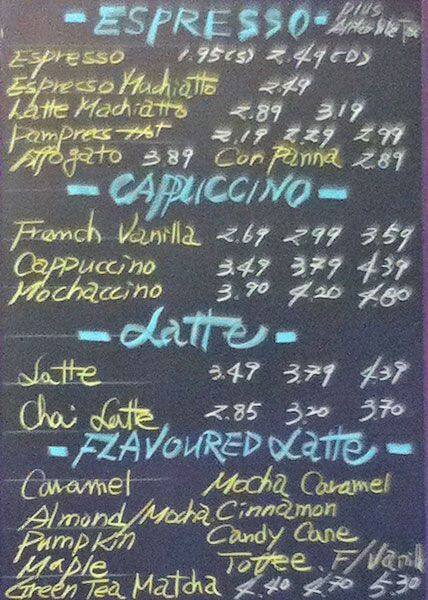 - ESPRESSO - plus
Applicable Tax
Espresso 1.95(S) 2.49(D)
Espresso Machiatto 2.49
Latte Machiatto 2.89 3.19
2.19 2.29 2.99
Affogato 3.89 Con Panna 2.89
- CAPPUCCINO -
French Vanilla 2.69 2.99 3.59
Cappuccino 3.49 3.79 4.39
Mochaccino 3.90 4.20 4.80
- Latte -
Latte 3.49 3.79 4.39
Chai Latte 2.85 3.20 3.70
- FLAVOURED Latte -
Caramel Mocha Caramel
Almond/Mocha Cinnamon
Pumpkin Candy Cane
Maple Toffee. F/Vanil
Green Tea Matcha 4.40 4.70 5.30